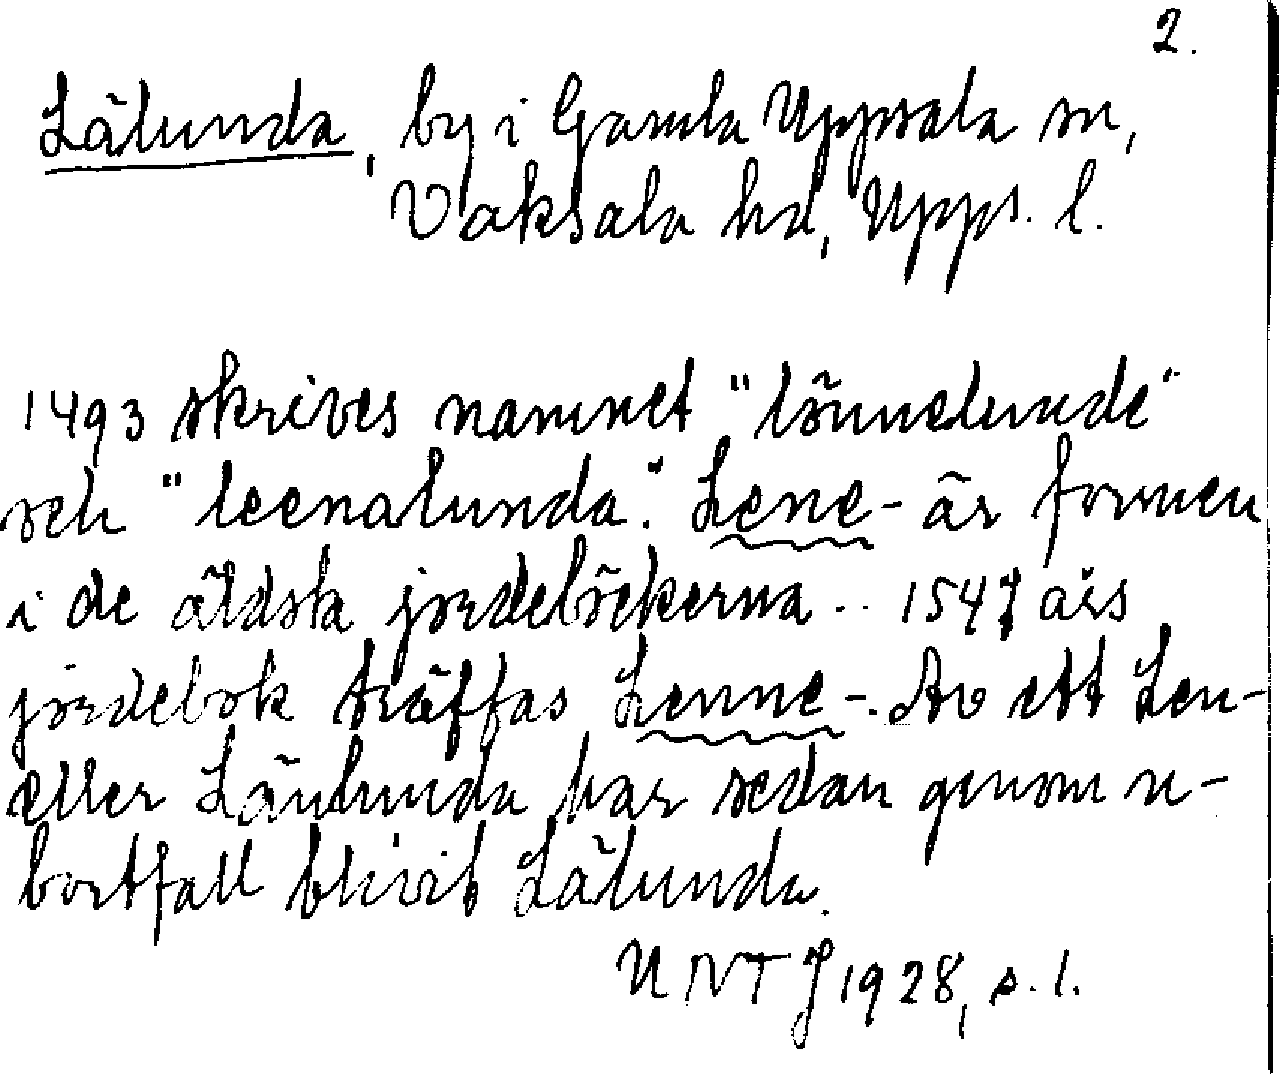 2.
Lälunda, by i Gamla Uppsala sn,
Vaksala hd, Upps. l.
1493 skrives namnet "lönnelunde"
och "leenalunda". Lene- är formen
i de äldsta jordeböckerna .. 1547 års
jordebok träffas Lenne-. Av ett Len-
eller Länlunda har sedan genom n-
bortfall blivit Lälunda.
UNT J 1928, s. 1.